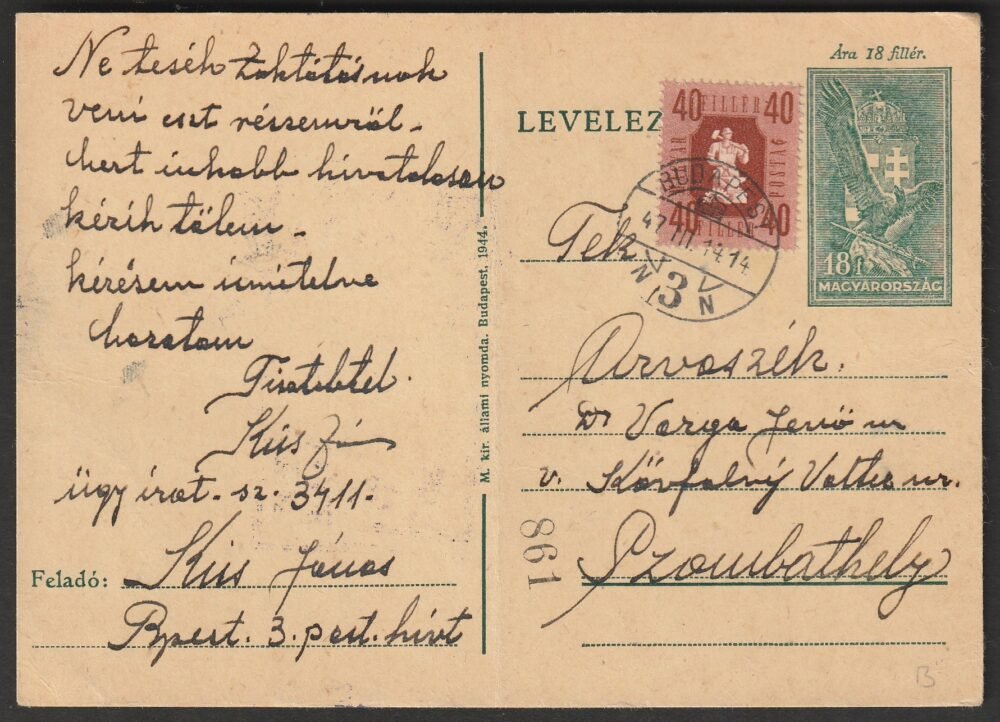 Ne tesék Zaktatásnak
veni eszt részemről -
hert inkább hivatalosan
kérik tőlem -
kérésem ismételve
maratam
Tisztelettel.
Kiss
ügy irat. sz. 3411.
Feladó: Kiss János
Bpest. 3. post. hivt
M. kir. állami nyomda. Budapest, 1944.
Ára 18 fillér.
LEVELEZ
40 FILLÉR 40
MAGYAR POSTA
40 FILLÉR 40
BUDAPEST
47 III. 14 14
N 3 N
18 f
MAGYARORSZÁG
Tek
Arvaszék.
Dr Varga Jenő ur
v. Kőrfalvy ur.
Szombathely
861
B